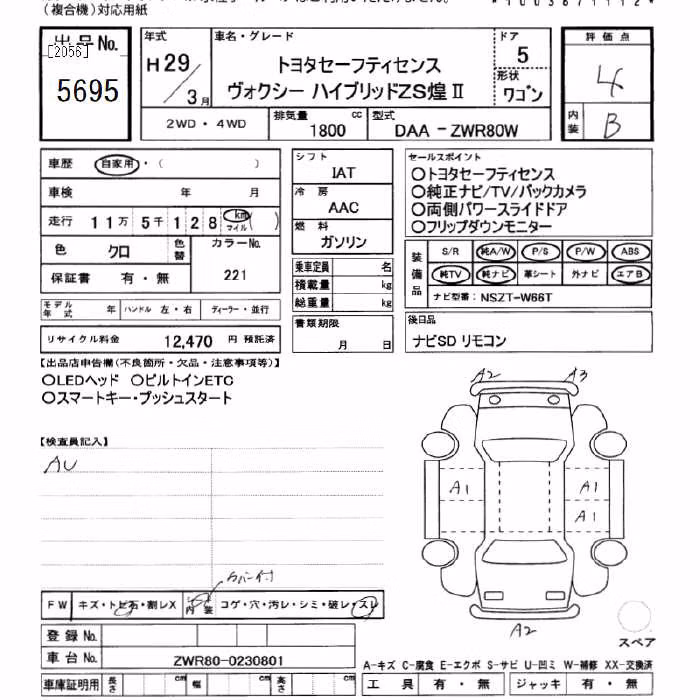 (複合機)対応用紙
*1003671112*
出品No.
[2056]
5695
年式
H29/3月
車名・グレード
トヨタセーフティセンス
ヴォクシー ハイブリッドZS煌Ⅱ
ドア
5
形状
ワゴン
評価点
4
内装
B
2WD・4WD
排気量
1800
cc
型式
DAA-ZWR80W
車歴
自家用・( )
車検 年 月
走行 11万 5千 128 km マイル ( )
色 クロ
色替
カラーNo.
221
保証書 有・無
モデル年式 年
ハンドル 左・右
ディーラー・並行
リサイクル料金 12,470 円 預託済
シフト
IAT
冷房
AAC
燃料
ガソリン
乗車定員 名
積載量 kg
総重量 kg
書類期限
月 日
セールスポイント
○トヨタセーフティセンス
○純正ナビ/TV/バックカメラ
○両側パワースライドドア
○フリップダウンモニター
装備品
S/R 純A/W P/S P/W ABS
純TV 純ナビ 革シート 外ナビ エアB
ナビ型番: NSZT-W66T
後日品
ナビSD リモコン
【出品店申告欄(不良箇所・欠品・注意事項等)】
○LEDヘッド ○ビルトインETC
○スマートキー・プッシュスタート
【検査員記入】
AU
A2
A3
A1
A1
A1
A2
スペア
FW
キズ・トビ石・割レX
内装
コゲ・穴・汚レ・シミ・破レ・スレ
登録No.
車台No.
ZWR80-0230801
車庫証明用 長さ cm 幅 cm 高さ cm
A-キズ C-腐食 E-エクボ S-サビ U-凹ミ W-補修 XX-交換済
工具 有・無
ジャッキ 有・無